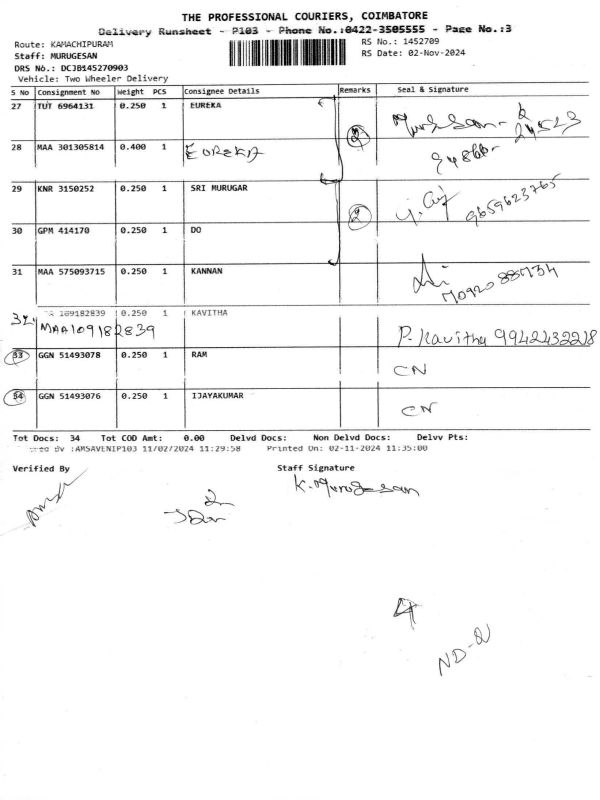 THE PROFESSIONAL COURIERS, COIMBATORE
Delivery Runsheet - P103 - Phone No.:0422-3505555 - Page No.:3
Route: KAMACHIPURAM
RS No.: 1452709
Staff: MURUGESAN
RS Date: 02-Nov-2024
DRS No.: DCJB145270903
Vehicle: Two Wheeler Delivery
S No Consignment No Weight PCS Consignee Details Remarks Seal & Signature
27 TUT 6964131 0.250 1 EUREKA
28 MAA 301305814 0.400 1 EUREKA
29 KNR 3150252 0.250 1 SRI MURUGAR 2 9659623765
30 GPM 414170 0.250 1 DO
31 MAA 575093715 0.250 1 KANNAN
32 MAA 109182839 0.250 1 KAVITHA
MAA109182839 P. Kavitha 9942432218
33 GGN 51493078 0.250 1 RAM CN
34 GGN 51493076 0.250 1 IJAYAKUMAR CN
Tot Docs: 34 Tot COD Amt: 0.00 Delvd Docs: Non Delvd Docs: Delvv Pts:
BV :AMSAVENIP103 11/02/2024 11:29:58 Printed On: 02-11-2024 11:35:00
Verified By Staff Signature
K. Murugesan
4
ND-2